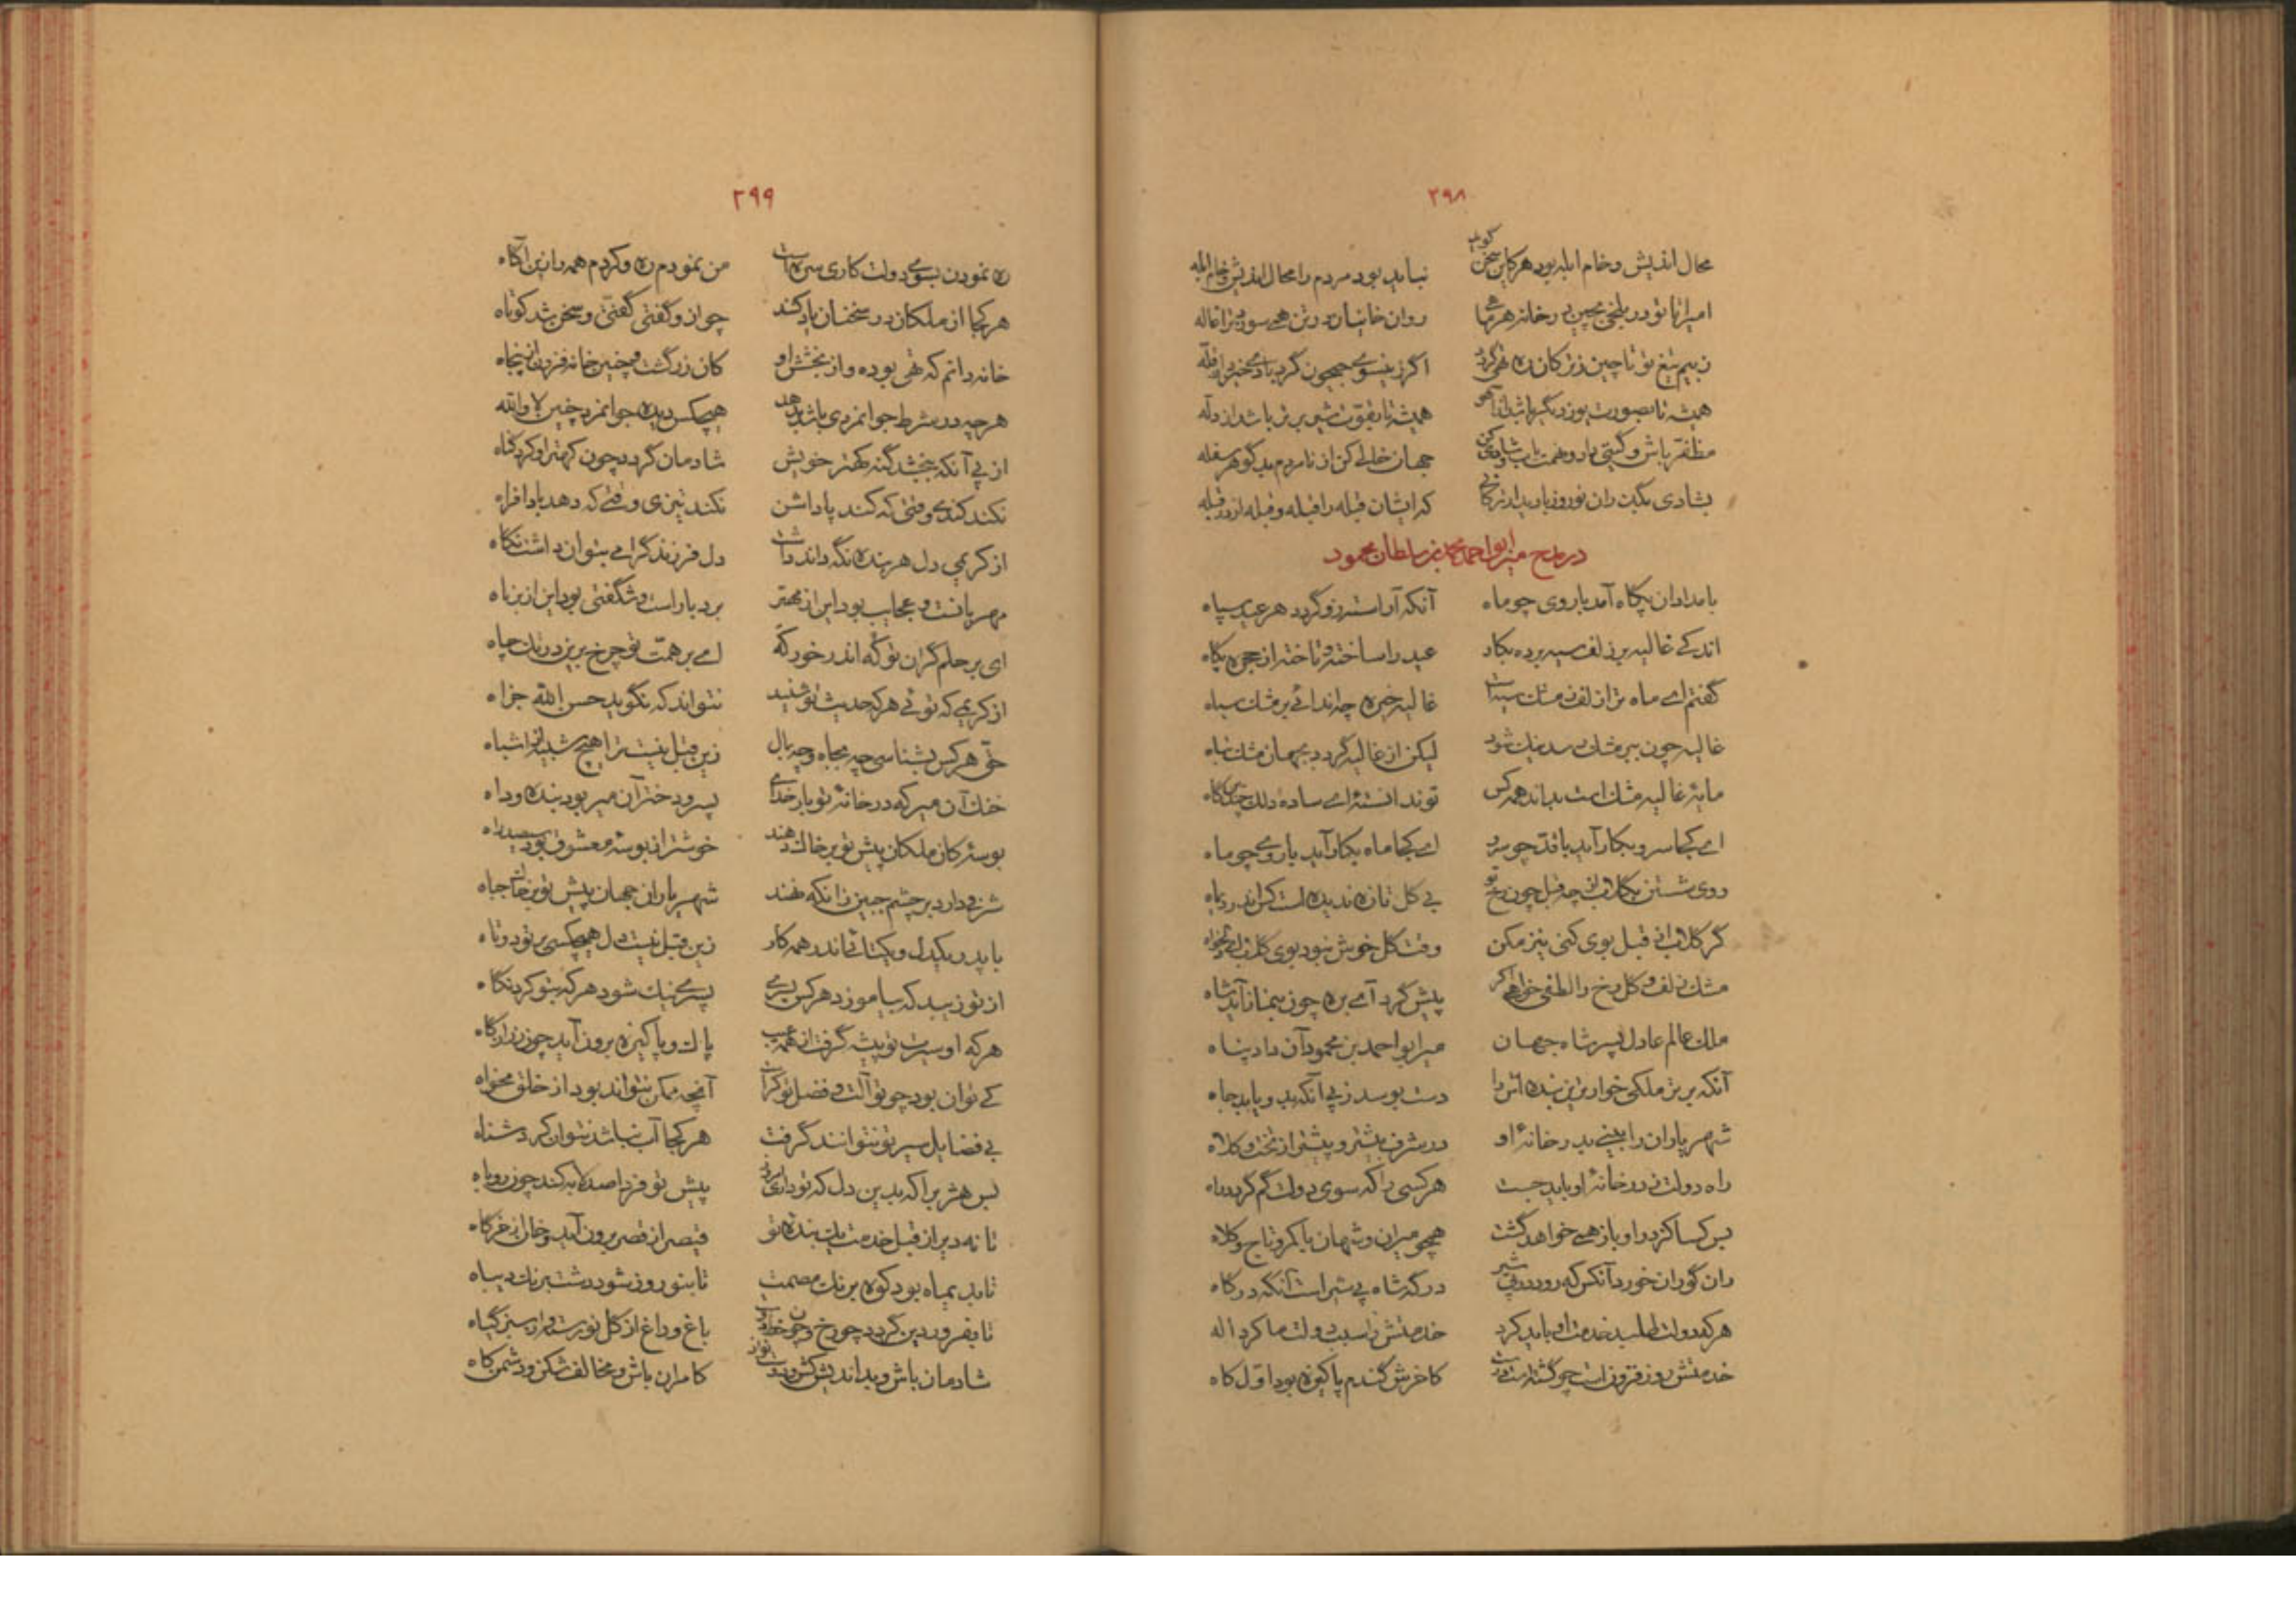 ۲۹۸
محال اندیش و خام ابله بود هر کاین سخن گوید نباید بود مردم را محال اندیش و خام ابله
امیرا تا تو در بلخی بچین در خانه هر روان خانیان در تن همی سوزد
ز بیم تیغ تو تا چین ز ترکان ره تهی گردد اگر زینسوی جیحون گرد بادی خیزد از
همیشه تا بصورت یوز دیگر باشد از آهو همیشه تا بقوت شیر برتر باشد از دله
مظفر باش و گیتی دار و نعمت پاش و شادی کن جهان خالی کن از نامردم بدگوهر سفله
بشادی بگذران نوروز با دیدار ترکانی که ایشان قبله را قبله و قبله از در قبله
در مدح میر ابو احمد محمد بن سلطان محمود
بامدادان پگاه آمد با روی چو ماه آنکه آراسته زو گردد هر عید سپاه
اندکی غالیه بر زلف سیه برده بکار عید را ساخته و تاخته از حجره پگاه
گفتم ای ماه ترا زلف ز مشک سیه است غالیه خیره چه اندائی بر مشک سیاه
غالیه چون بر مشک رسد نیک شود لیکن از غالیه گردد بجهان مشک تباه
مایهٔ غالیه مشک است بداند همه کس تو ندانستهٔ ای ساده دلک چندین گاه
ای کجا سرو بکار آید با قد چو سرو ای کجا ماه بکار آید با روی چو ماه
روی شستن بگلاب از چه قبل چون رخ تو بی گل تازه ندیده است کس اندر دیماه
گر گلاب از قبل بوی کنی نیز مکن وقت گل خوش نبود بوی گلاب ای دلخواه
مشک زلف و گل رخ را لطفی خواهم کرد پیش گرد آمی بره چون بنماز آید شاه
ملک عالم عادل پسر شاه جهان میر ابو احمد بن محمود آن داد پناه
آنکه بر تر ملکی خوارترین بنده اش را دست بوسد ز پی آنکه بدو یابد جاه
شهریاران را بینی بدر خانهٔ او در شرف بیشتر و پیشتر از تخت و کلاه
راه دولت ز در خانهٔ او باید جست هر کسی را که سوی دولت گم گردد راه
بس کسا کز در او باز همی خواهد گشت همچو میران و شهان با کمر و تاج و کلاه
ران گوران خورد آنکس که رود در پی شیر درگه شاه پی شیر است آنگه درگاه
هر که دولت طلبد خدمت او باید کرد خدمتش را سبب دولت ما کرد اله
خدمتش روز فزون است چو گشته است درست کاخرش گندم پاکیزه بود اول کاه
۲۹۹
ره نمودن بسوی دولت کاری سره است من نمودم ره و کردم همه را زین آگاه
هر کجا از ملکان در سخنان یاد کنند چو ازو گفتی گفتی و سخن شد کوتاه
خانه دانم که تهی بوده و از بخشش او کان زر گشت و چنین خانه فزون از پنجاه
هر چه در شرط جوانمردی باشد بدهد هیچکس دیده جوانمرد چنین لا والله
از پی آنکه ببخشد گنه کهتر خویش شادمان گردد چون کهتر او کرد گناه
نکند کندی وقتی که کند پاداشن نکند تیزی وقتی که دهد بادافراه
از کریمی دل هر بنده نگه داند داشت دل فرزند گرامی بتوان داشت نگاه
مهربانست و عجایب بود این از مهتر بردبار است و شگفتی بود این از برناه
ای بر حلم گران تو که اندر خور که ای بر همت تو چرخ برین در تک چاه
از کریمی که توئی هر که حدیث تو شنید نتواند که نگوید حسن الله جزاه
حق هر کس بشناسی چه بجاه و چه بمال زین قبل نیست ترا هیچ شبیه از اشباه
خنک آن میر که در خانهٔ تو بار خدای پسر و دختر آن میر بود بنده و داه
بوسهٔ کان ملکان پیش تو بر خاک دهند خوشتر از بوسهٔ معشوق بود سیصد راه
شرف دارد بر چشم جبین زانکه نهند شهریاران جهان پیش تو بر خاک جباه
با پدر یکدل و یکتائی اندر همه کار زین قبل نیست دل هیچکسی بر تو دو تاه
از تو زیبد که بیاموزد هر کس پسری پسری نیک شود هر که بتو کرد نگاه
هر که او سیرت تو پیشه گرفت از همه عیب پاک و پاکیزه برون آید چون زر از گاه
کی توان بود چو تو آلت و فضل تو کراست آنچه ممکن نتواند بود از خلق مخواه
بی فضایل سیر تو نتوانند گرفت هر کجا آب نباشد نتوان کرد شناه
بس هژبرا که بدین دل که تو داری امروز پیش تو فردا صد لابه کند چون روباه
تا نه دیر از قبل خدمت یک بنده تو قیصر از قصر برون آید و خان از خرگاه
تا بدیماه بود کوه برنگ مصمت تا بنوروز شود دشت برنگ دیباه
تا بفروردین گردد چو رخ و چون خط دوست باغ و راغ از گل نو رسته و از سبز گیاه
شادمان باش و بد اندیش کش و دوست نواز کامران باش و مخالف شکن و دشمن کاه